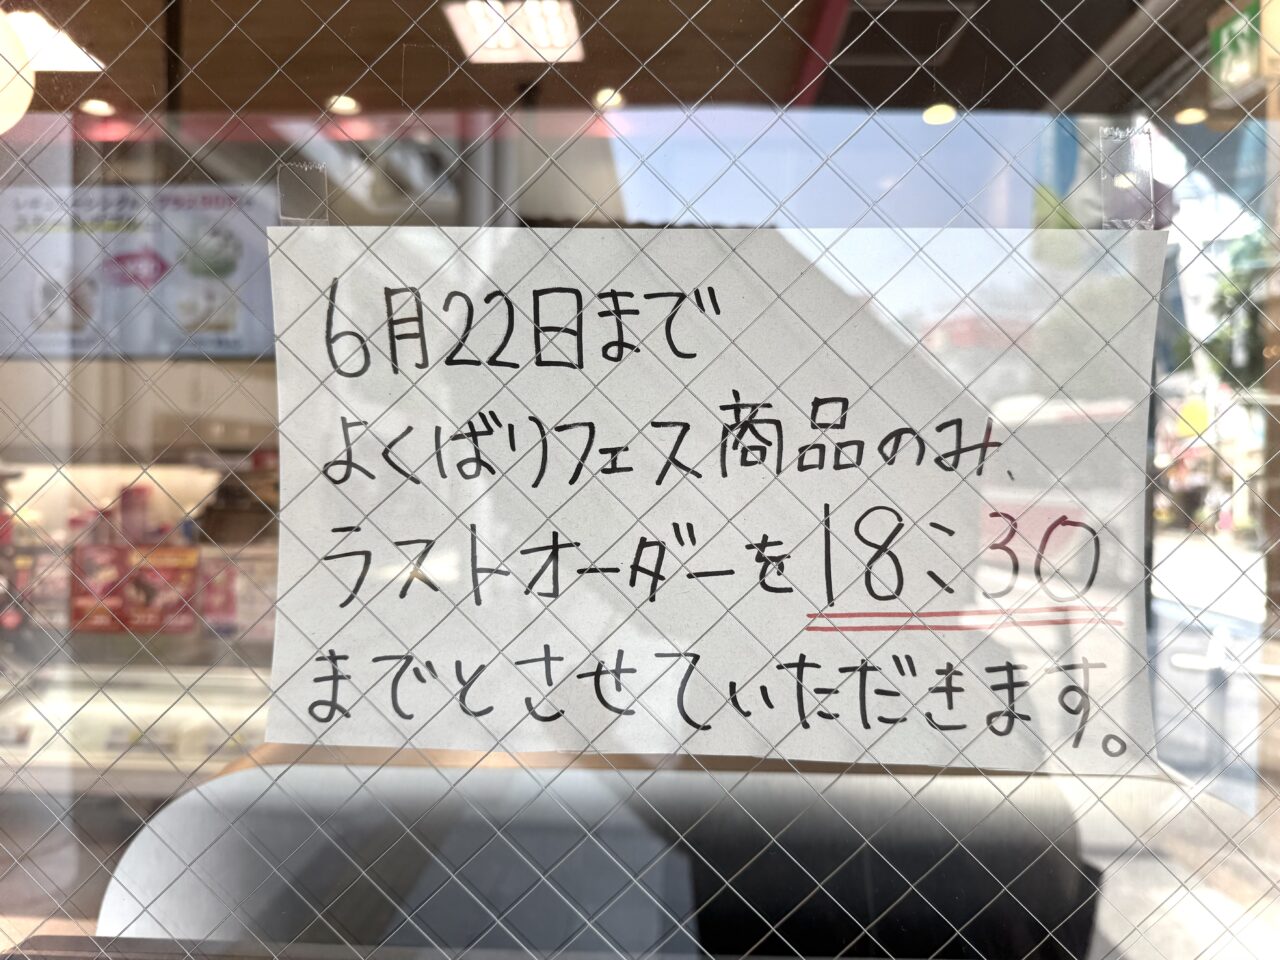 6月22日まで
よくばりフェス商品のみ、
ラストオーダーを18:30
までとさせていただきます。